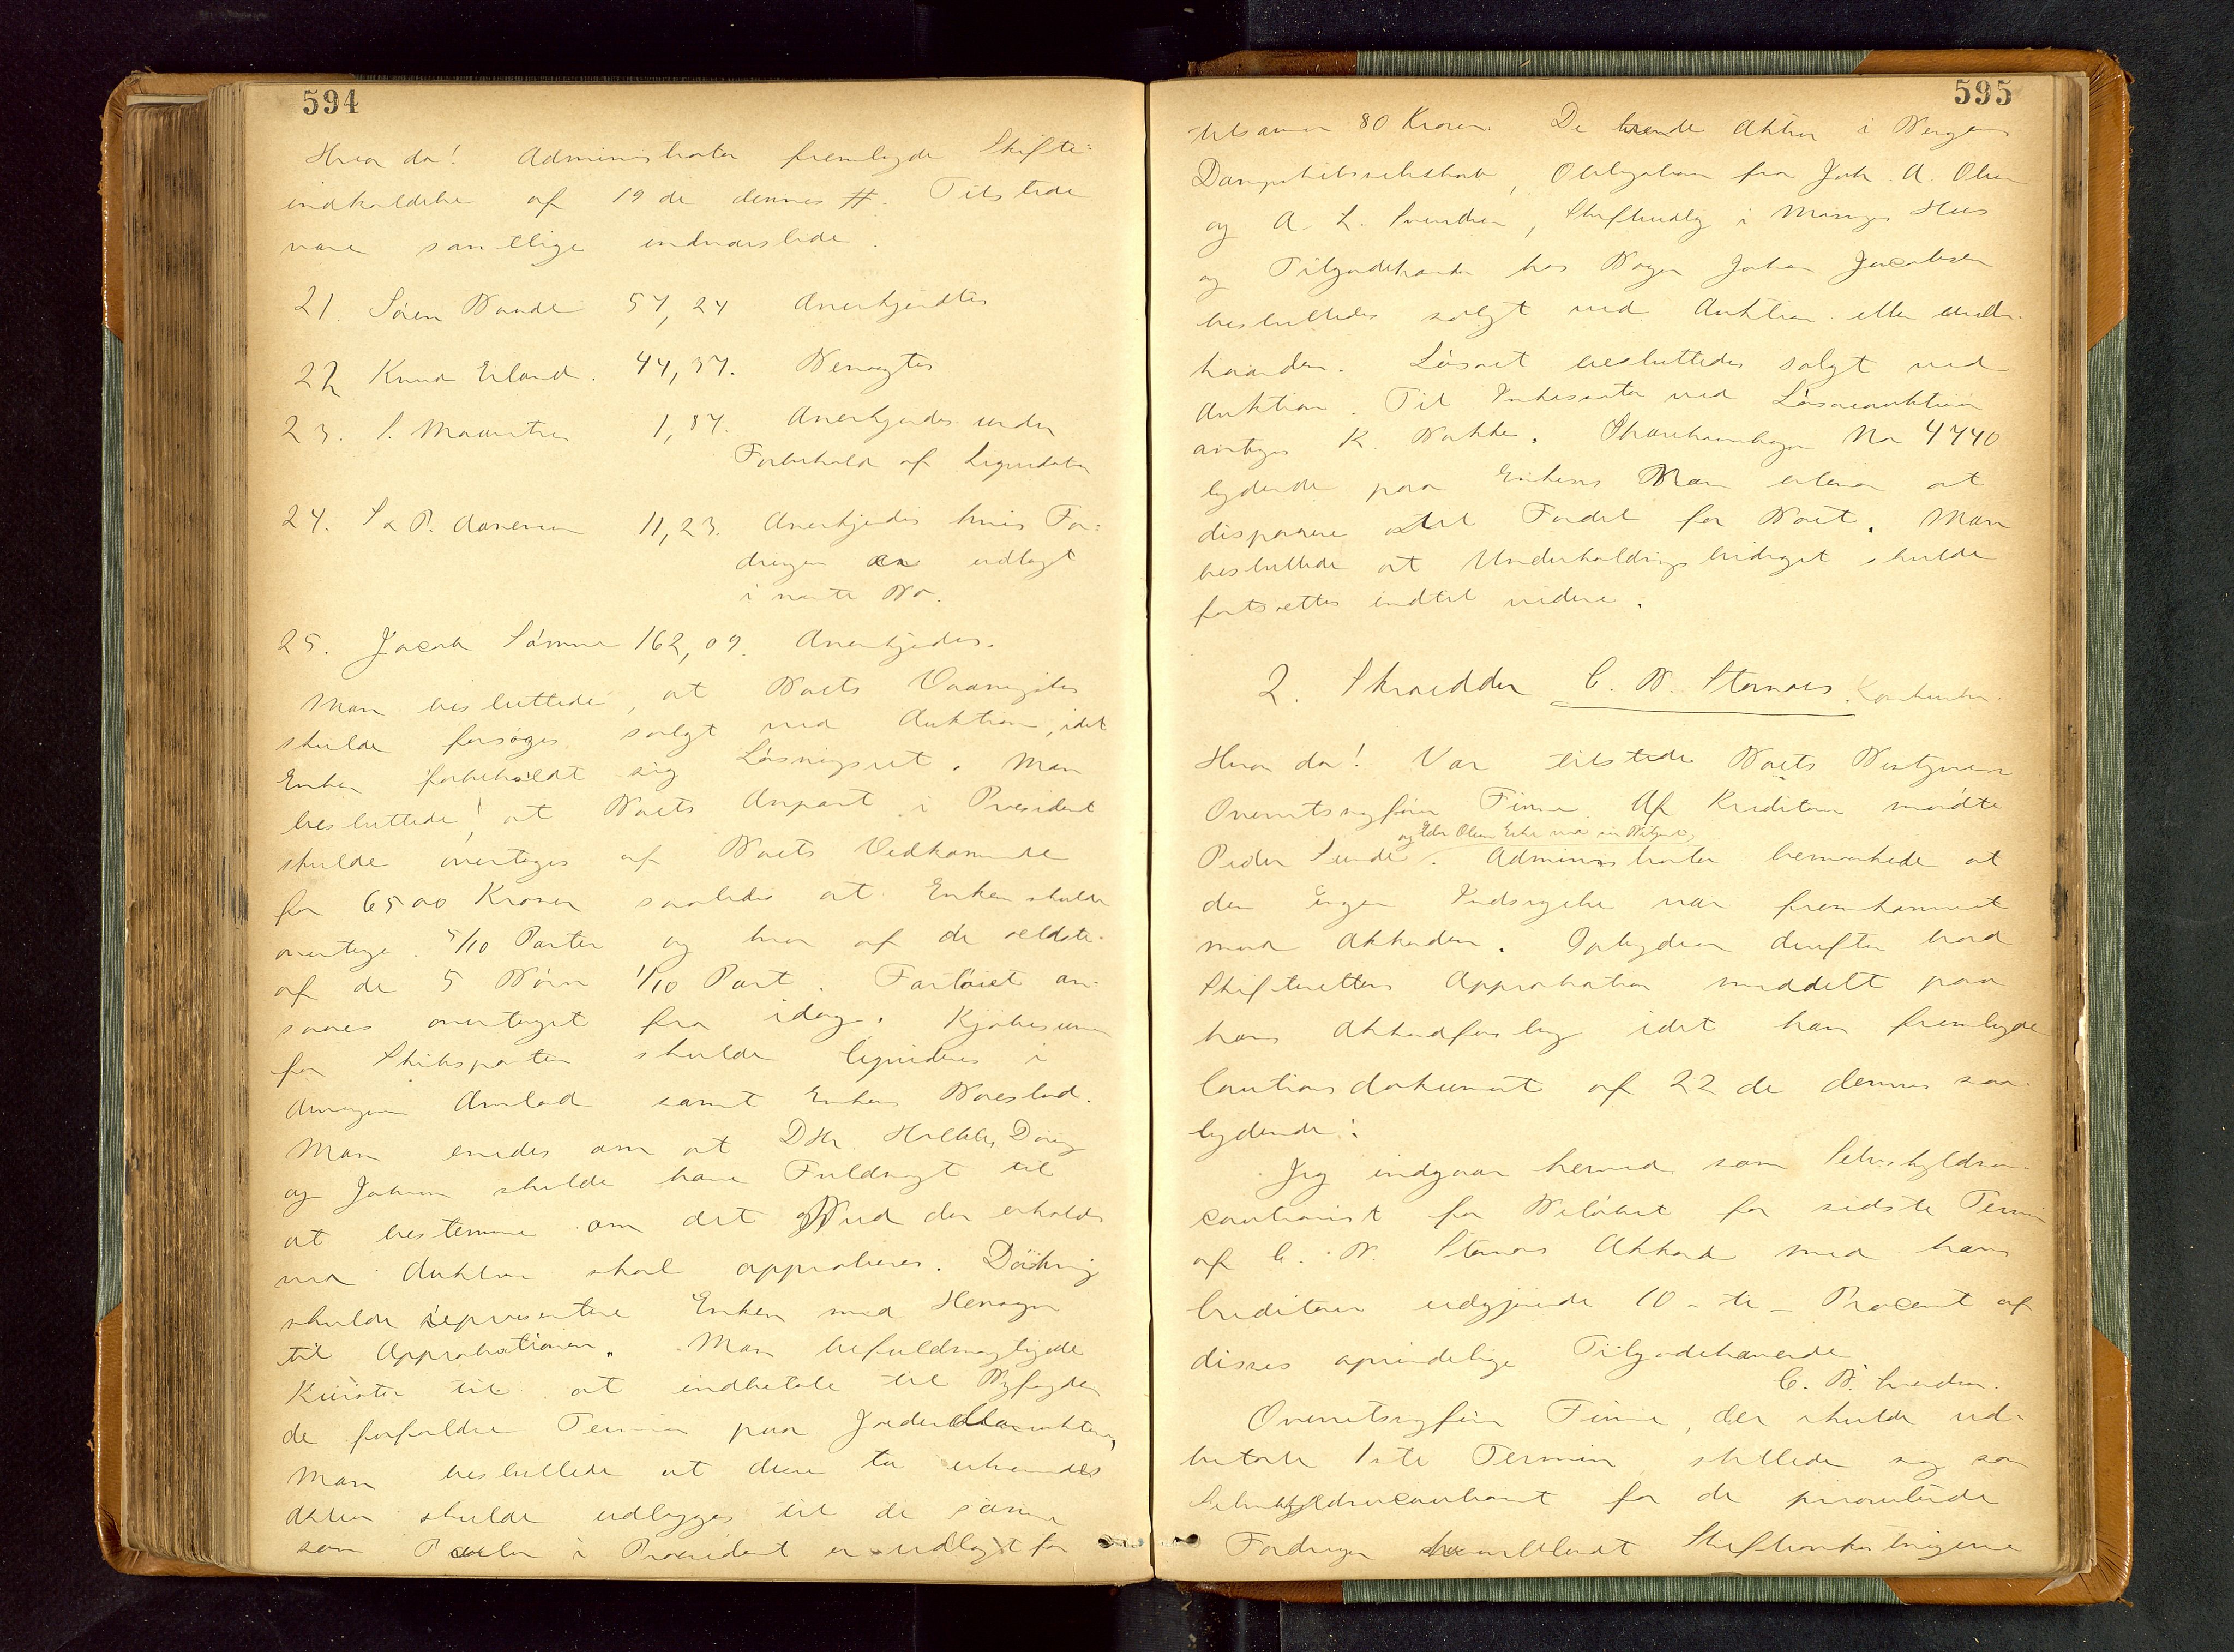 594
Hvor da! Administrator fremlagde Skifte-
indkaldelse af 19de dennes #. Tilstede
vare samtlige indvarslede.
21. Sören Bande 57,24 Anerkjendtes
22 Knud Erland. 44,37. Benægtes
23. S. Mauritzen 1,87. Anerkjendes under
Forbehold af Liquidation
24. S & P. Aanensen 11,23. Anerkjendes hvis For-
dringen er udlagt
i nævnte Bo.
25. Jacob Sömme 162,09. Anerkjendes.
Man besluttede, at Boets Vaaningshus
skulde forsöges solgt ved Auktion, idet
Enken forbeholdt sig Lösningsret. Man
besluttede, at Boets Anpart i Præsident
skulde overtages af Boets Vedkommende
for 6500 Kroner saaledes at Enken skulde
overtage 5/10 Parter og hver af de ældste
af de 5 Börn 1/10 Part. Fartöiet an-
saaes overtaget fra idag. Kjöbesummen
for Skibsparten skulde liquideres i
Arvingernes Arvelod samt Enkens Boeslod.
Man enedes om at DHr. Döring
og Johnsen skulde have Fuldmagt til
at bestemme om det Bud der erholdes
ved Auktion skal approberes. Döhring
skulde repræsentere Enken med Hensyn
til Approbationen. Man befuldmægtigede
til at indbetale til Byfogden
de forfaldne Terminer paa
Man besluttede at disse to
Aktier skulde udlægges til de samme
som Parter i Præsident er udlagt for
595
tilsamen 80 Kroner. De Aktier i Bergens
Dampskibsselskab, Obligation fra Joh. A. Olsen
og A. L. Svendsen, Skifteudlæg i Hus
og Tilgodehavende hos Johan Jacobsen
besluttedes solgt ved Auktion eller under-
haanden. Lösöret besluttedes solgt ved
Auktion. Til Inkassator ved Lösöreauktion
antages K. Bakke. No 4740
lydende paa Enkens Navn at
disponere til Fordel for Boet. Man
besluttede at Underholdningsbidraget skulde
fortsættes indtil videre.
2. Skrædder C. B. Stornæs. Konkursbo.
Hvor da! Var tilstede Boets Bestyrer
Overretssagförer Finne. Af Kreditorer mödte
Peder Sunde. Administrator bemærkede at
der ingen Indsigelse var fremkommet
mod Akkorden. derefter
Skifterettens Approbation meddelt paa
hans Akkordforslag idet han fremlagde
Cautionsdokument af 22de dennes saa-
lydende:
Jeg indgaar herved som Selvskyldner-
cautionist for Belöbet for sidste Termin
af C. B. Stornæs Akkord med hans
Creditorer udgjörende 10 - ti - Procent af
disses oprindelige Tilgodehavende
C. B. Svendsen.
Overretssagförer Finne, der skulde ud-
betale 1ste Termin, stillede sig som
Selvskyldnercautionist for de prioriterede
Fordringer Skifteomkostningerne